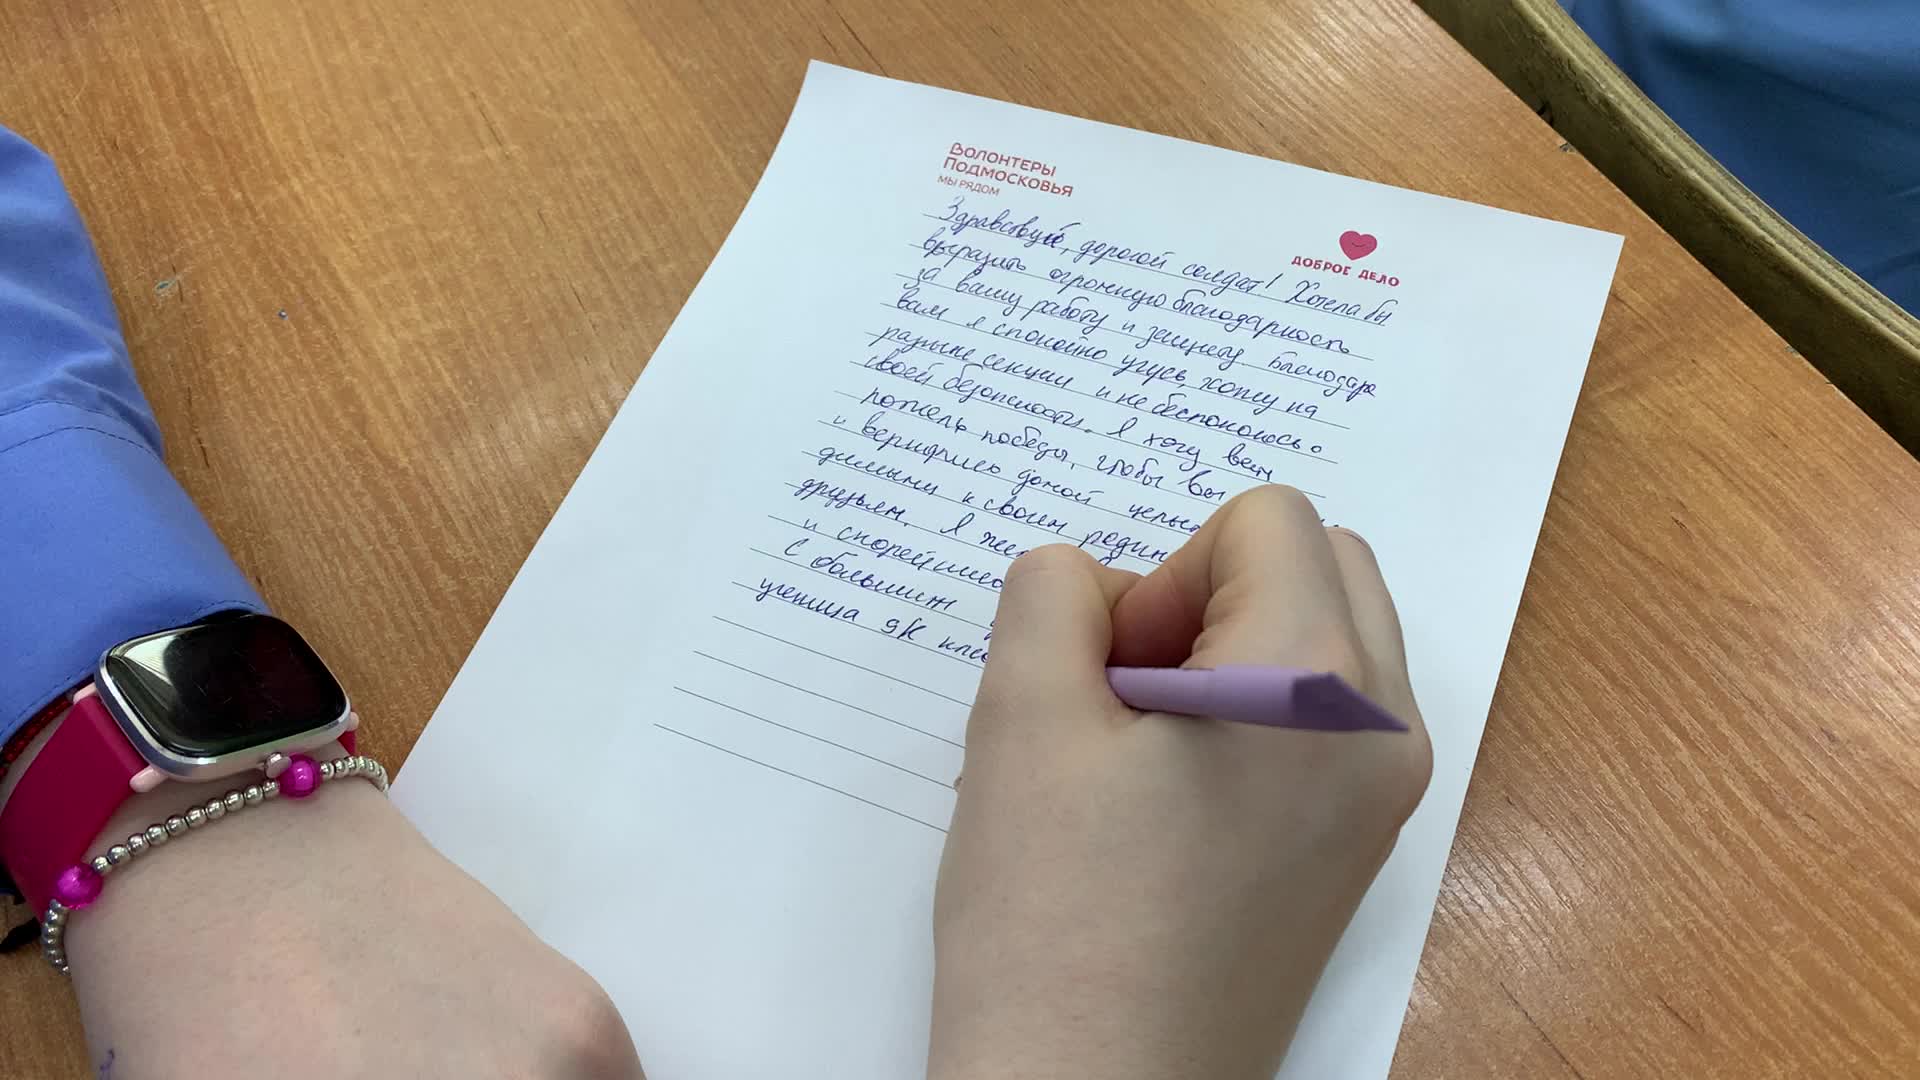 ВОЛОНТЕРЫ
ПОДМОСКОВЬЯ
МЫ РЯДОМ
ДОБРОЕ ДЕЛО
Здравствуй, дорогой солдат! Хотела бы
выразить огромную благодарность
за вашу работу и защиту. Благодаря
вам я спокойно учусь, хожу на
разные секции и не беспокоюсь о
своей безопасности. Я хочу вам
победы, чтобы вы
и вернулись домой
к своим родным
друзьям. Я
и скорейшего
С большим
ученица 9К